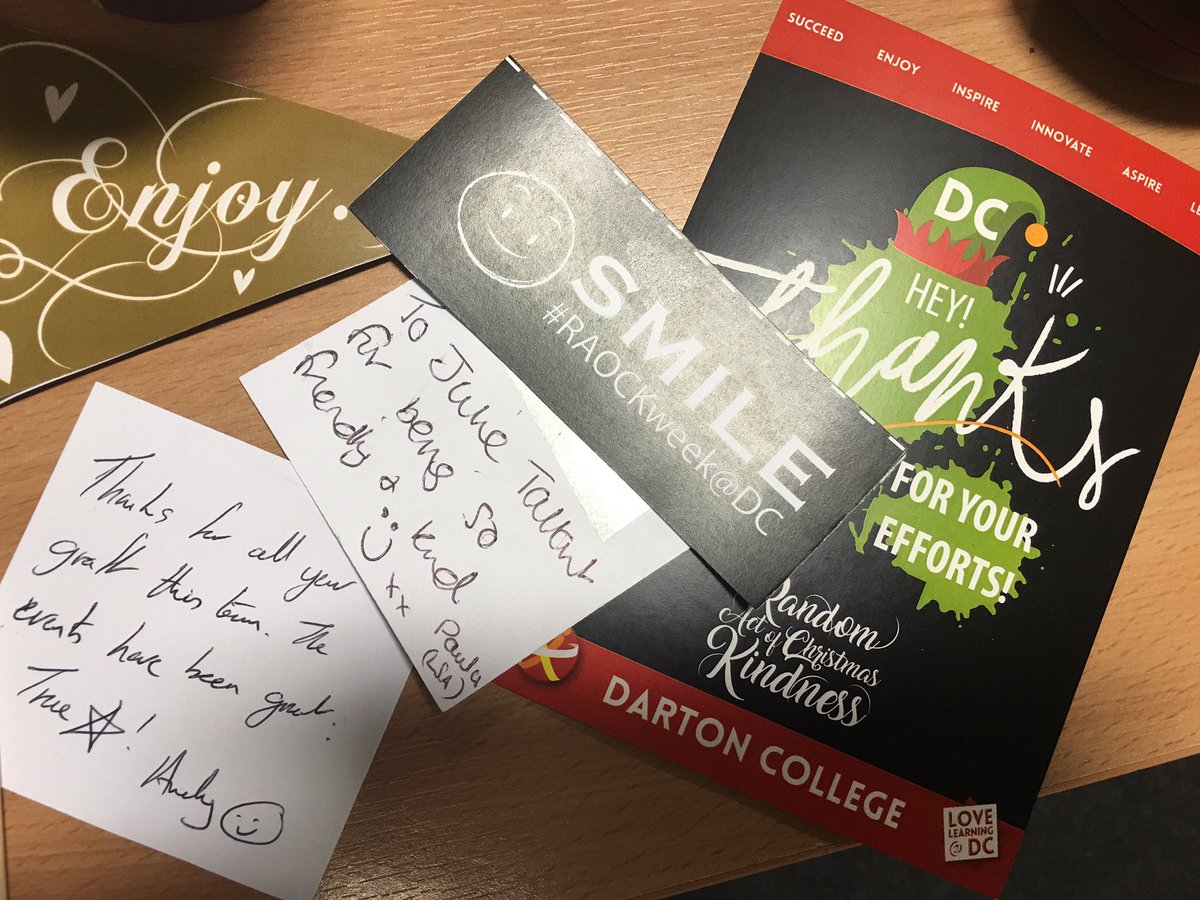 Enjoy.
SMILE
#RAOCKweek@DC
To Julie Tallent
for being so
friendly & kind
☺ xx Paula
Thanks for all your
graft this term. The
events have been great.
True ☆!
Andy ☺
SUCCEED ENJOY INSPIRE INNOVATE ASPIRE
DC
HEY!
Thanks
FOR YOUR
EFFORTS!
Random
Act of Christmas
Kindness
DARTON COLLEGE
LOVE
LEARNING
@ DC